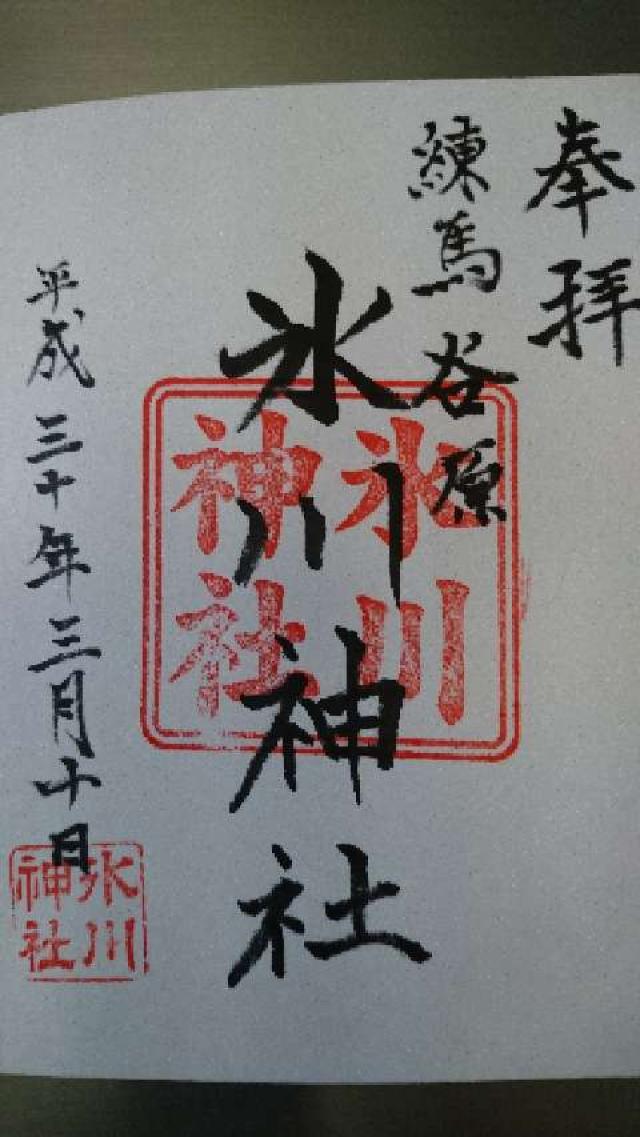 奉拝
練馬谷原
氷川神社
平成三十年三月十日
氷川
神社
氷川
神社